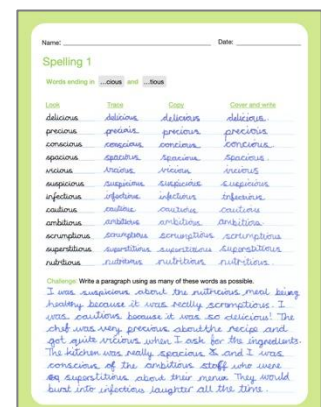 Name: Date:
Spelling 1
Words ending in ...cious and ...tious
Look Trace Copy Cover and write
delicious delicious delicious delicious
precious precious precious precious
conscious conscious concious concious
spacious spacious spacious spacious
vicious vicious vicious vicious
suspicious suspicious suspicious suspicious
infectious infectious infectious infectious
cautious cautious cautious cautious
ambitious ambitious ambitious ambitious
scrumptious scrumptious scrumptious scrumptious
superstitious superstitious superstitious superstitious
nutritious nutritious nutritious nutritious
Challenge: Write a paragraph using as many of these words as possible.
I was suspicious about the nutricious meal being
healthy because it was really scromptious. I
was cautious because it was so delicious! The
chef was very precious about the recipe and
got quite vicious when I ask for the ingredients.
The kitchen was really spacious and I was
conscious of the ambitious staff who were
superstitious about their menus. They would
burst into infectious laughter all the time.